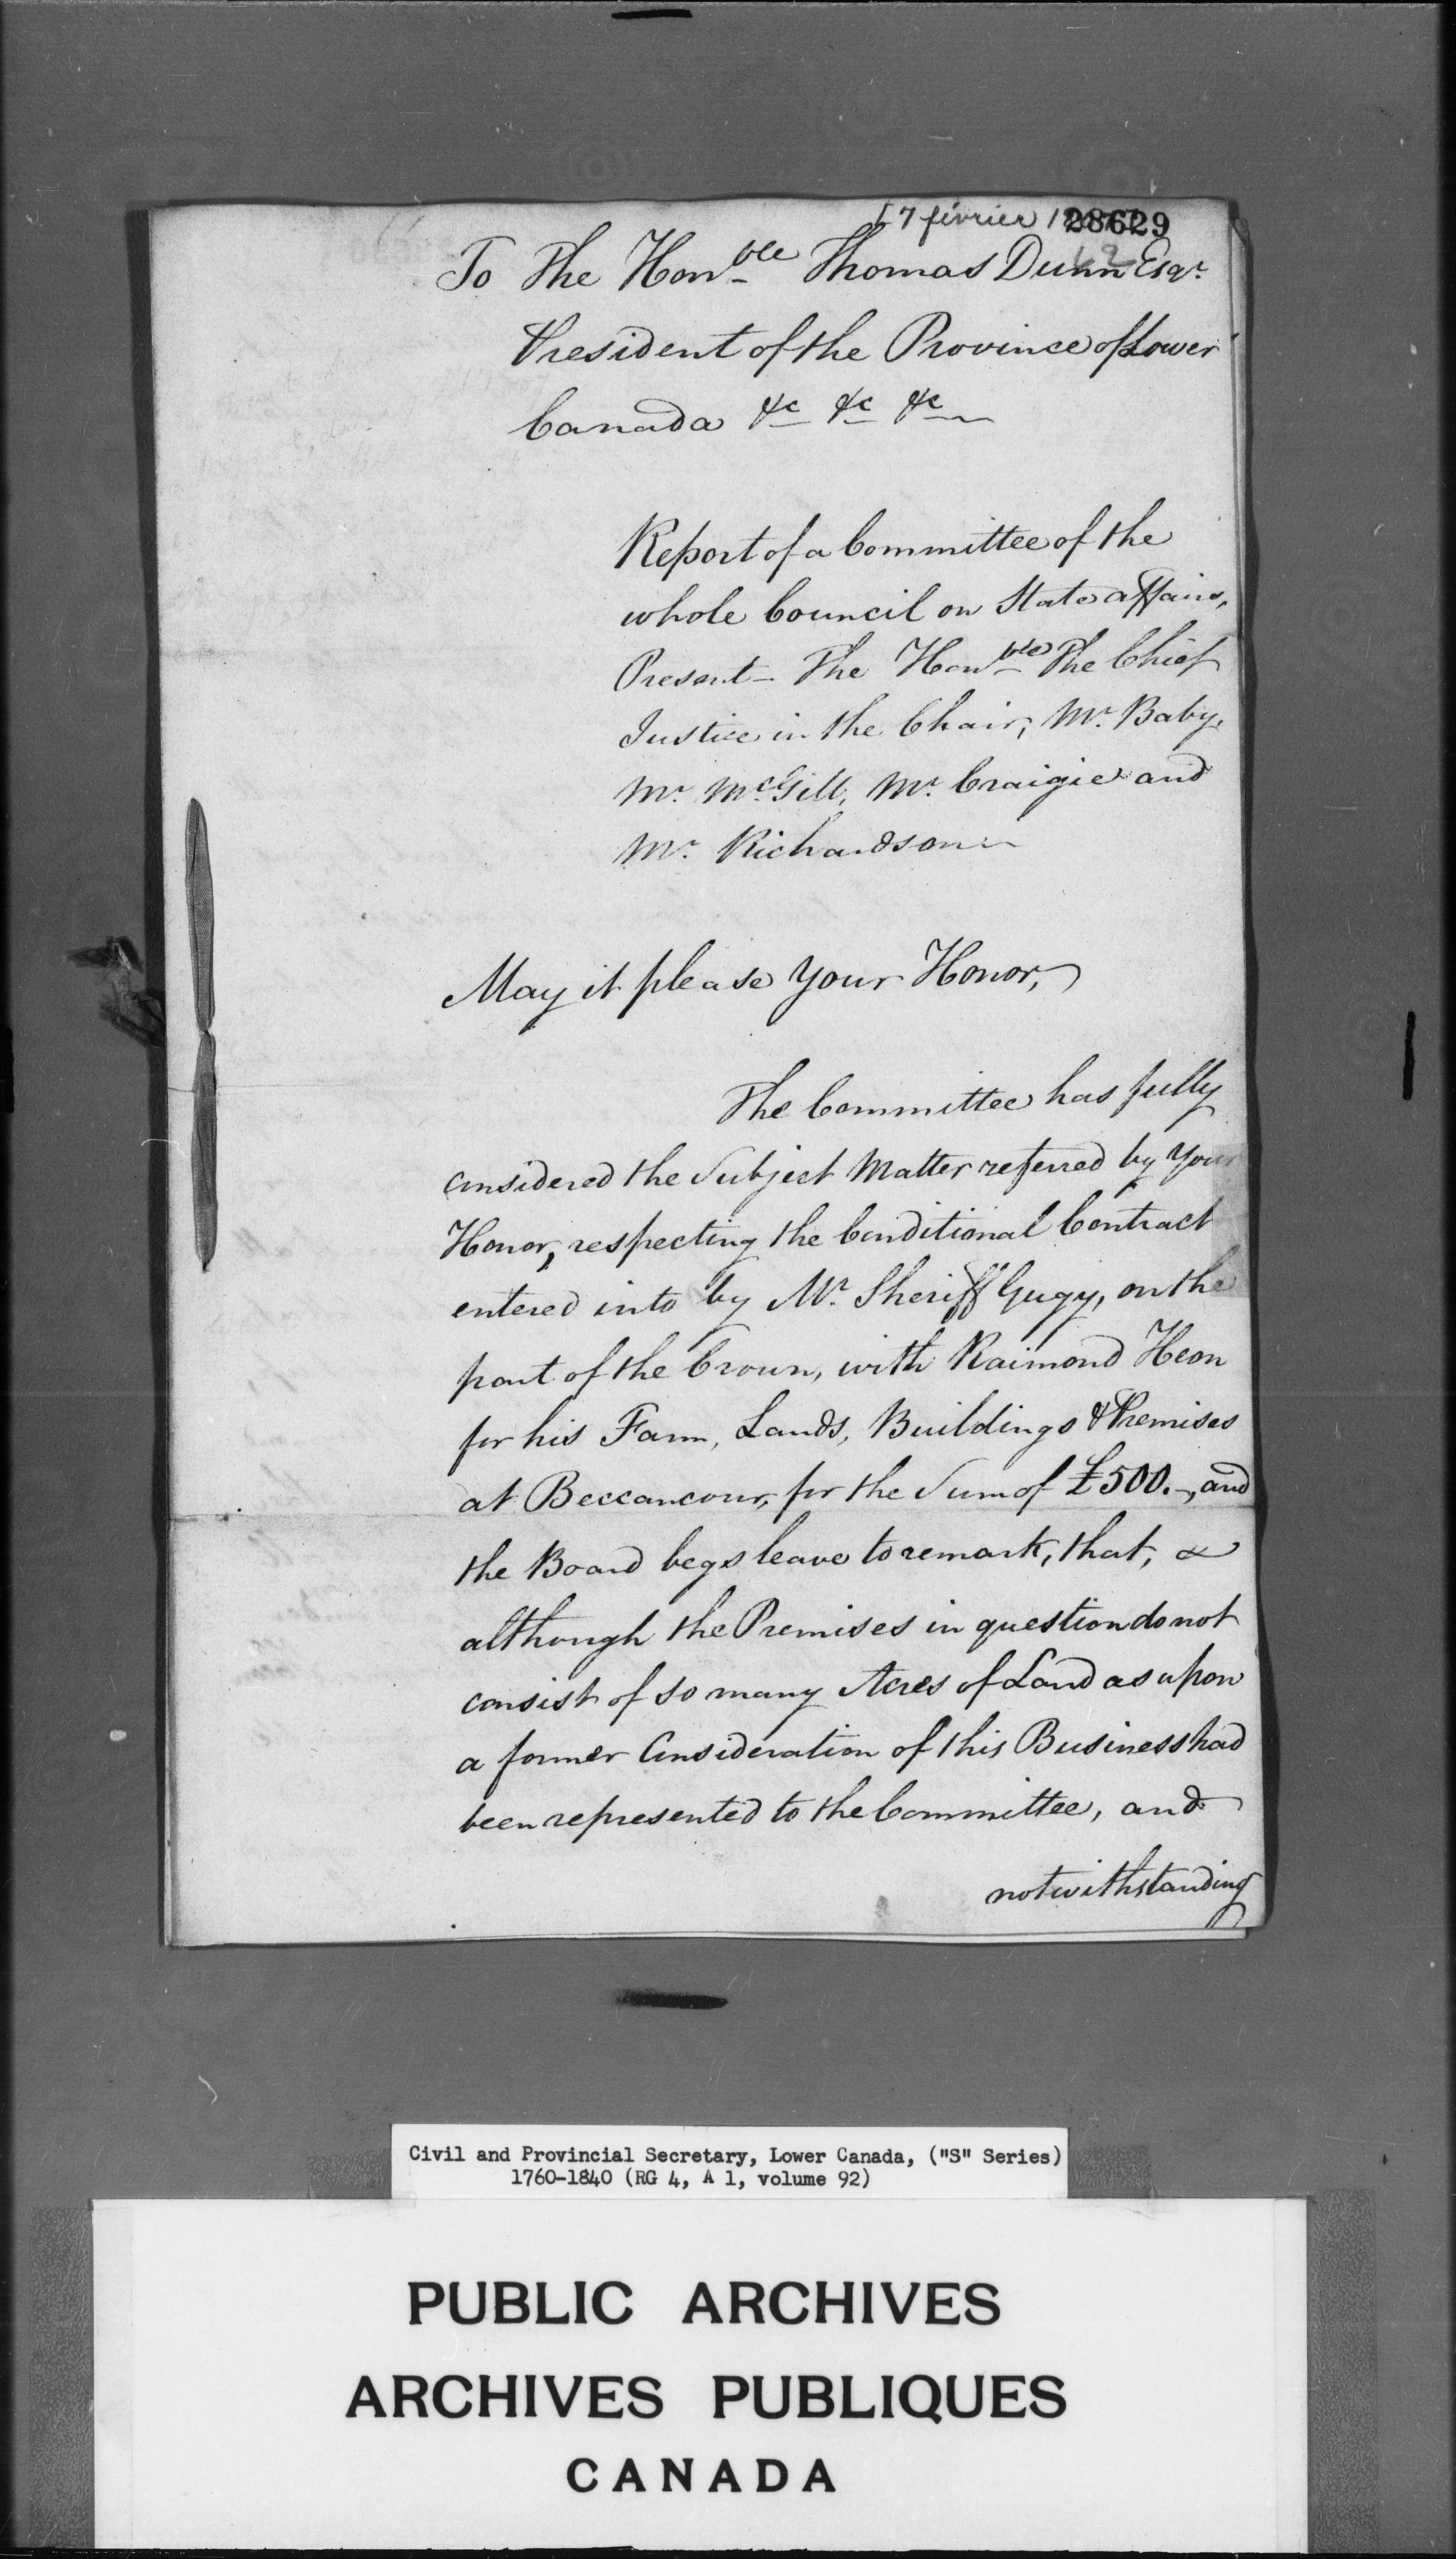 17 février
28629
To The Honble Thomas Dunn Esqr.
President of the Province of Lower
Canada &c &c &c
Report of a Committee of the
whole Council on State affairs,
Present – The Honble The Chief
Justice in the Chair, Mr. Baby,
Mr. McGill, Mr. Craigie and
Mr. Richardson
May it please Your Honor,
The Committee has fully
considered the Subject Matter referred by Your
Honor, respecting the Conditional Contract
entered into by Mr. Sheriff Gugy, on the
part of the Crown, with Raimond Heon
for his Farm, Lands, Buildings & Premises
at Beccancour, for the Sum of £500.–, and
the Board begs leave to remark, that,
although the Premises in question do not
consist of so many Acres of Land as upon
a former Consideration of this Business had
been represented to the Committee, and
notwithstanding
Civil and Provincial Secretary, Lower Canada, ("S" Series)
1760-1840 (RG 4, A 1, volume 92)
PUBLIC ARCHIVES
ARCHIVES PUBLIQUES
CANADA